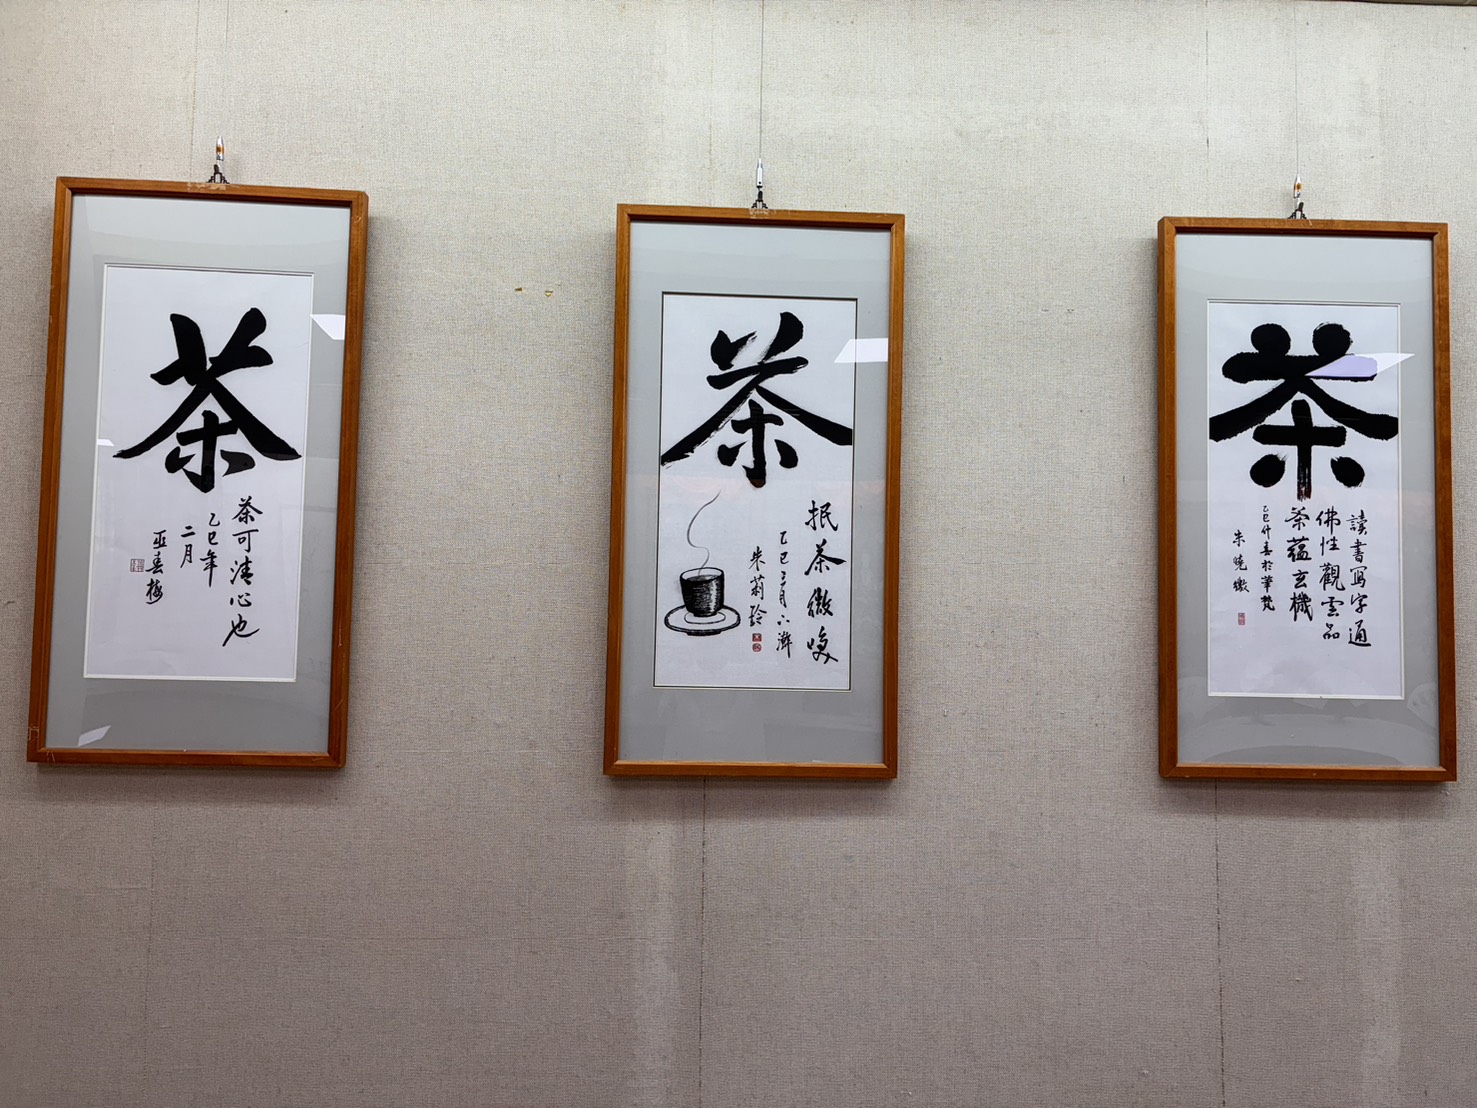 茶
茶可清心也
乙巳年
二月
亚春梅
茶
抿茶微嗅
乙巳二月下澣
朱莉玲
茶
讀書寫字通
佛性觀雲品
茶蘊玄機
乙巳仲春於華梵
朱曉